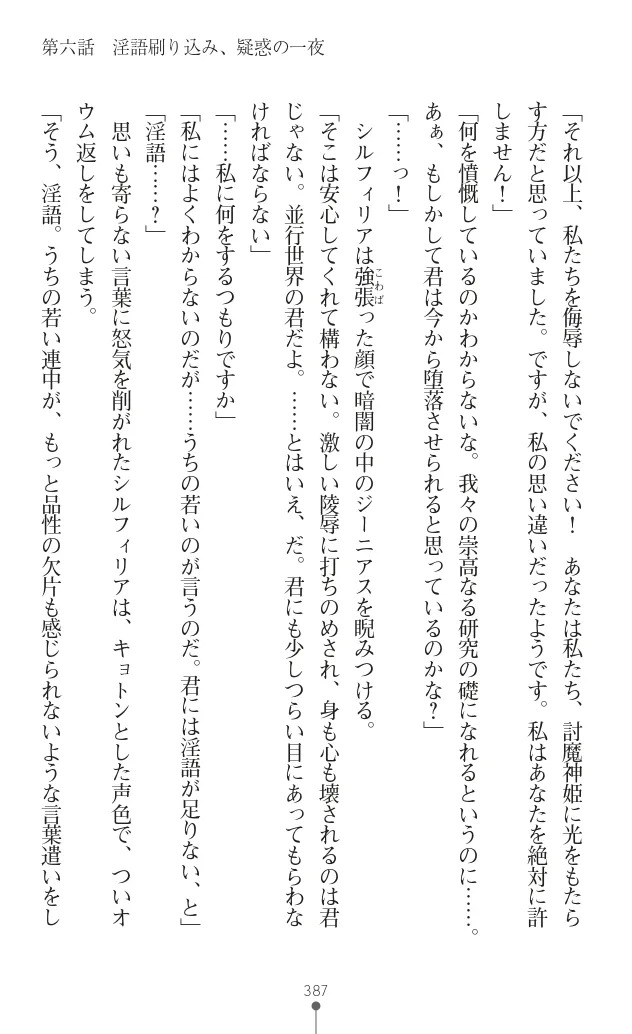 第六話　淫語刷り込み、疑惑の一夜
「それ以上、私たちを侮辱しないでください！　あなたは私たち、討魔神姫に光をもたら
す方だと思っていました。ですが、私の思い違いだったようです。私はあなたを絶対に許
しません！」
「何を憤慨しているのかわからないな。我々の崇高なる研究の礎になれるというのに……。
あぁ、もしかして君は今から堕落させられると思っているのかな？」
「……っ！」
シルフィリアは強張った顔で暗闇の中のジーニアスを睨みつける。
こわば
「そこは安心してくれて構わない。激しい陵辱に打ちのめされ、身も心も壊されるのは君
じゃない。並行世界の君だよ。……とはいえ、だ。君にも少しつらい目にあってもらわな
ければならない」
「……私に何をするつもりですか」
「私にはよくわからないのだが……うちの若いのが言うのだ。君には淫語が足りない、と」
「淫語……？」
思いも寄らない言葉に怒気を削がれたシルフィリアは、キョトンとした声色で、ついオ
ウム返しをしてしまう。
「そう、淫語。うちの若い連中が、もっと品性の欠片も感じられないような言葉遣いをし
387